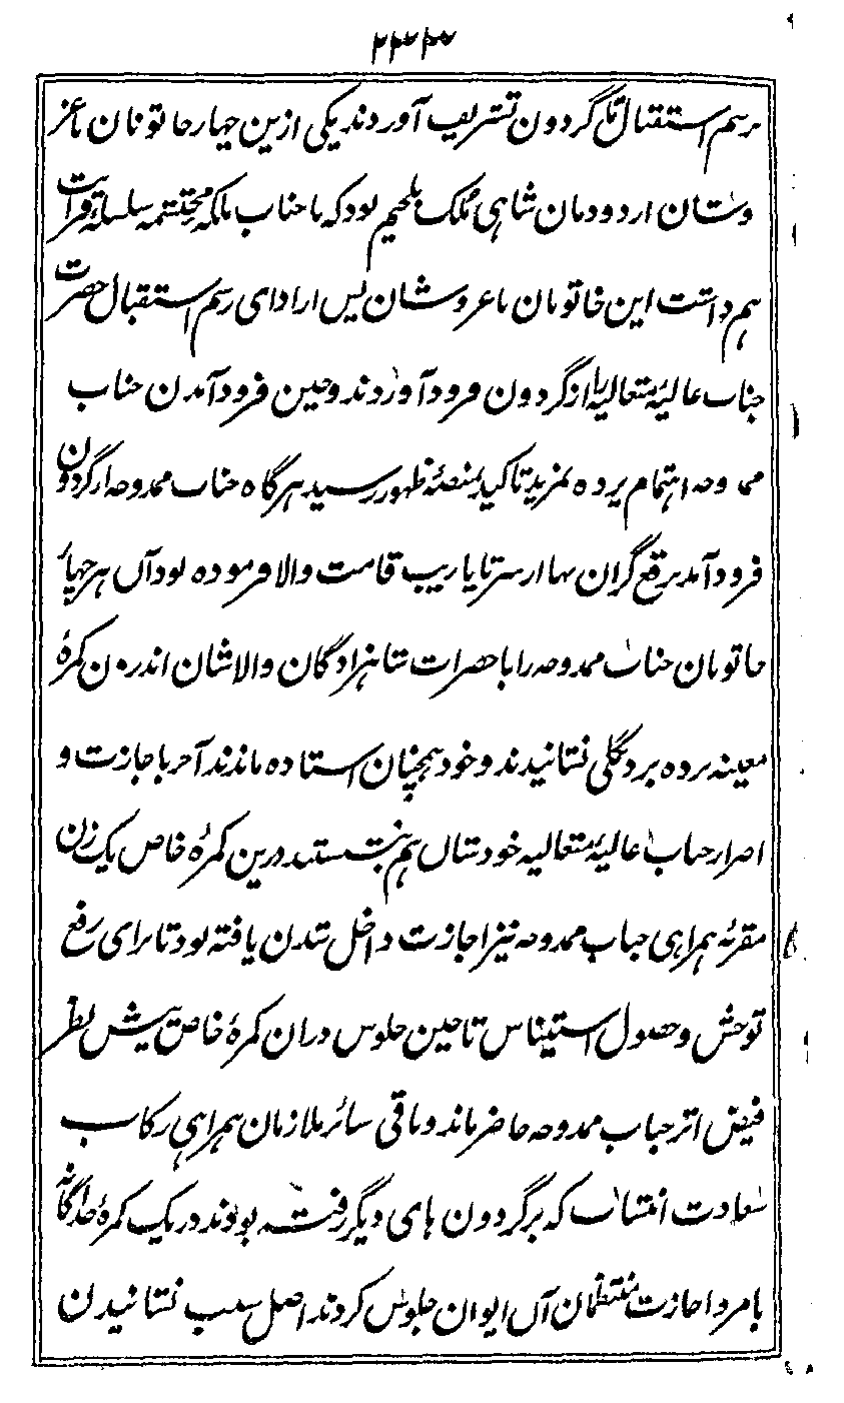 ۲۳۳
برسم استقبال تا گردون تشریف آوردند یکی ازین چهار خاتونان با عز
وشان از دودمان شاهی ملک بلجیم بود که با جناب ملکه محتشمه سلسلۀ قرابت
هم داشت این خاتونان با عز و شان پس از ادای رسم استقبال حضرت
جناب عالیۀ متعالیه را از گردون فرود آوردند و حین فرود آمدن جناب
ممدوحه اهتمام پرده بمزید تاکید بمنصۀ ظهور رسید هرگاه جناب ممدوحه از گردون
فرود آمد برقع گران بها از سر تا پا زیب قامت والا فرموده بود آں هر چهار
خاتونان جناب ممدوحه را با حضرات شاهزادگان والاشان اندرون کمرۀ
معینه برده بر دنگلی نشانیدند و خود همچنان استاده ماندند آخر باجازت و
اصرار جناب عالیۀ متعالیه خود شاں هم بنشستند درین کمرۀ خاص یک زن
مقربۀ همراهی جناب ممدوحه نیز اجازت داخل شدن یافته بود تا برای رفع
توحش و حصول استیناس تا حین جلوس دران کمرۀ خاص پیش نظر
فیض اثر جناب ممدوحه حاضر ماند و باقی سائر ملازمان همراهی رکاب
سعادت انتساب که بر گردون های دیگر رفته بودند در یک کمرۀ جداگانه
بامر و اجازت منتظمان آں ایوان جلوس کردند اصل سبب نشانیدن